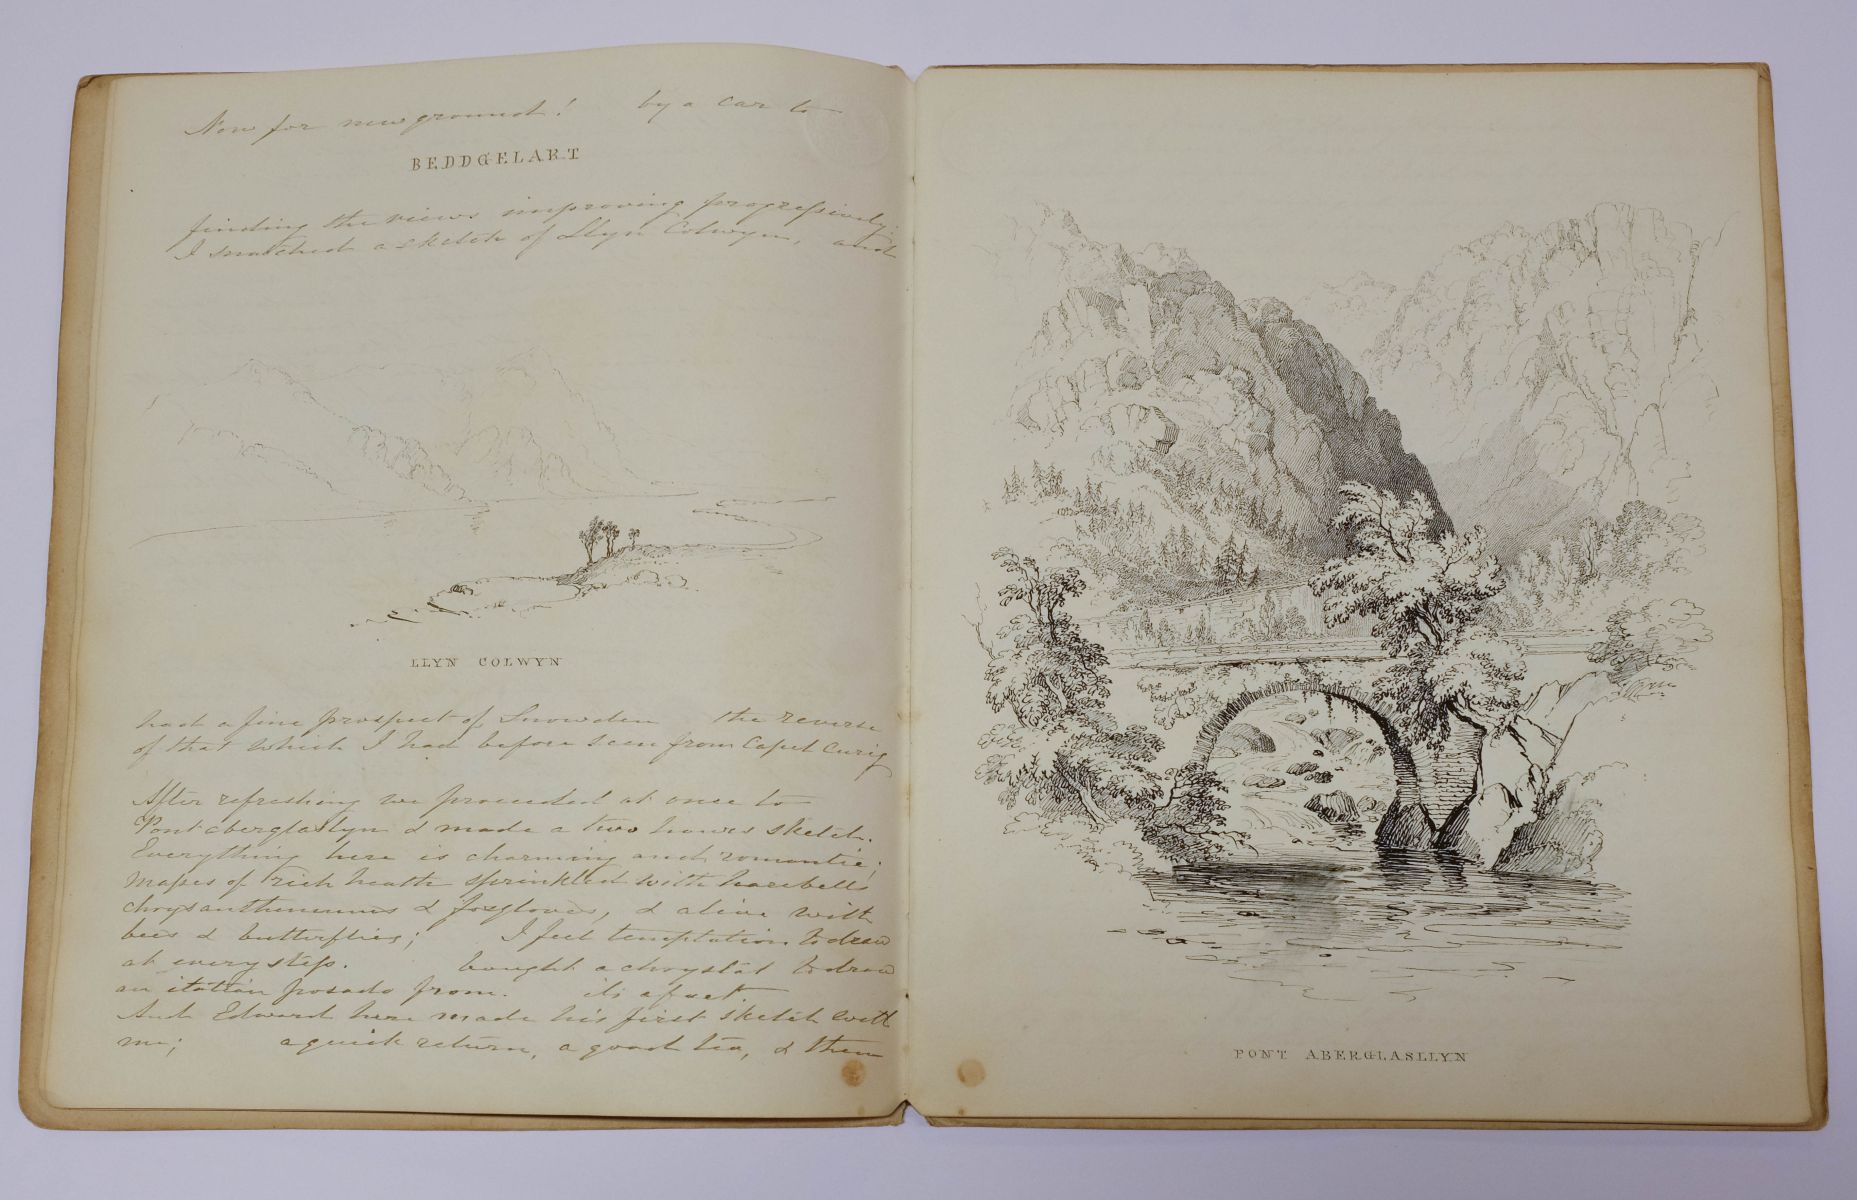 Now for new ground! by a car to
BEDDGELART
finding the views improving progressively.
I snatched a sketch of Llyn Colwyn, and
LLYN COLWYN
had a fine prospect of Snowden the reverse
of that which I had before seen from Capel Curig
After refreshing we proceeded at once to
Pont aberglaslyn & made a two hours sketch.
Everything here is charming and romantic;
masses of rich heath sprinkled with harebells
chrysanthemums & foxgloves, & alive with
bees & butterflies; I feel temptation to draw
at every step. bought a chrystal to draw
an italian posado from. its a fact.
And Edward here made his first sketch with
me; a quick return, a good tea, & then
PONT ABERGLASLLYN